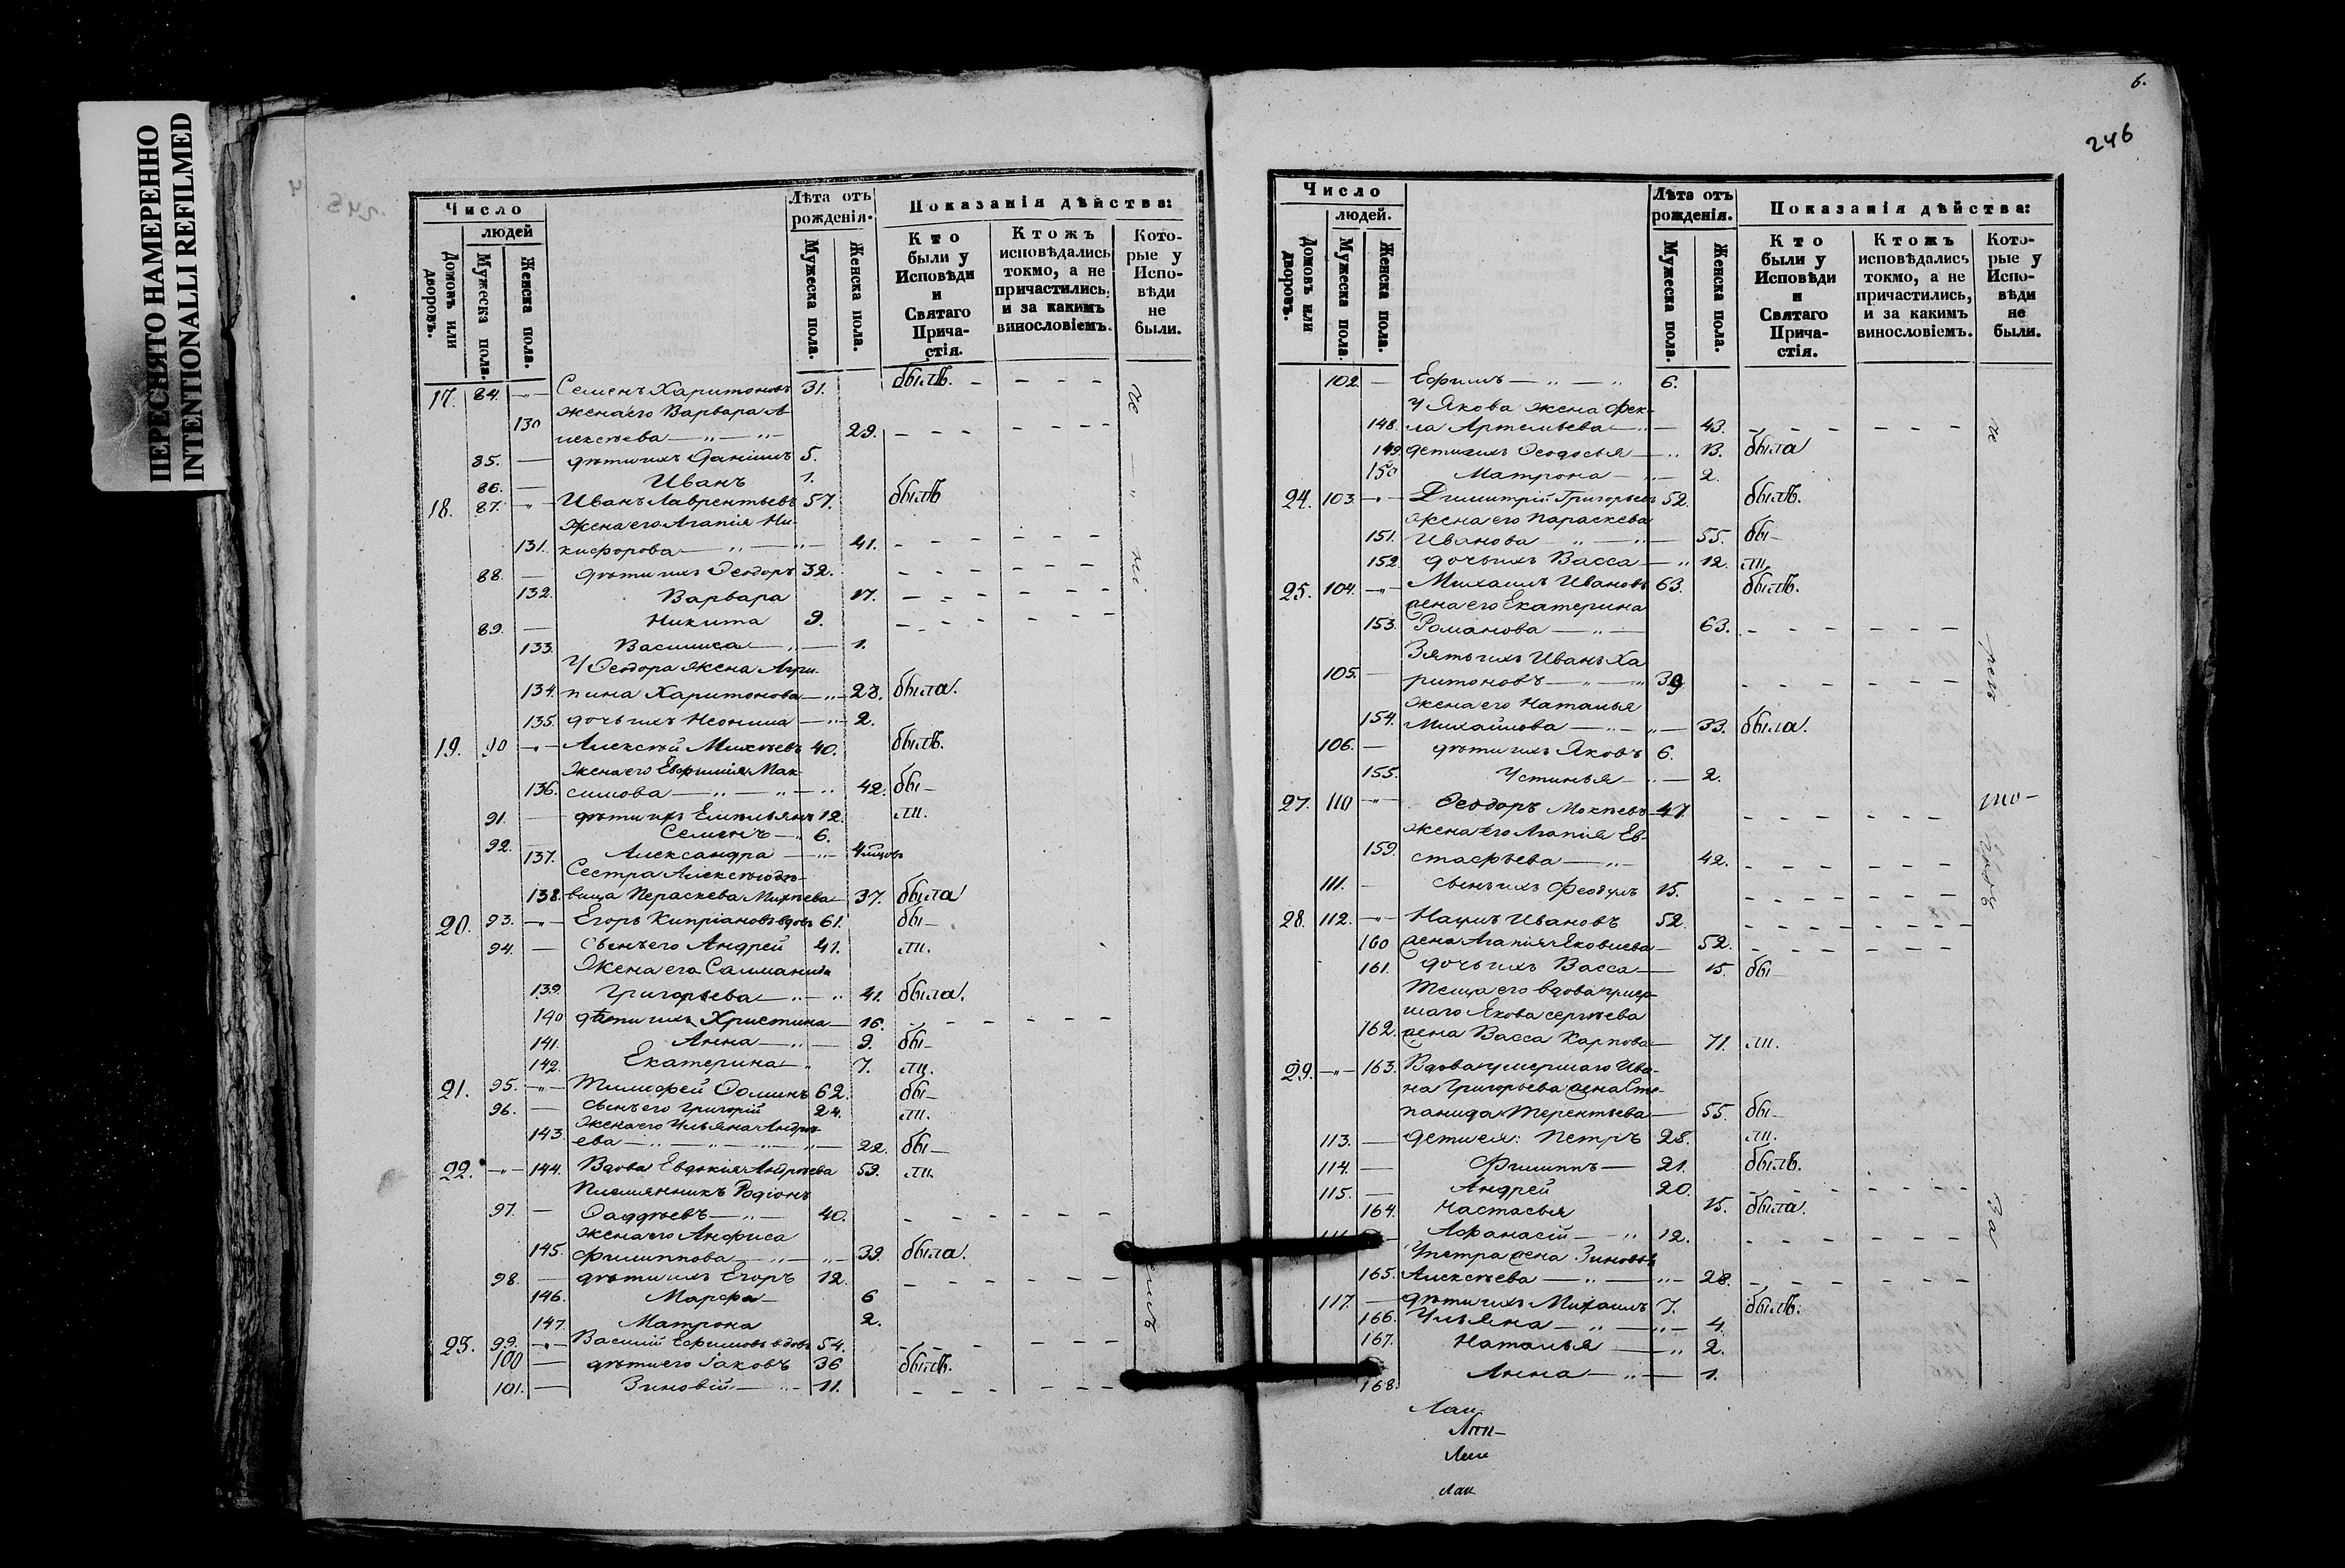 ПЕРЕСНЯТО НАМЕРЕННО
INTENTIONALLI REFILMED
Число
людей
Домовъ или дворовъ.
Мужеска пола.
Женска пола.
Лѣта отъ рожденія.
Мужеска пола.
Женска пола.
Показанія дѣйства:
Кто были у Исповѣди и Святаго Причастія.
Ктожъ исповѣдались токмо, а не причастились, и за какимъ винословіемъ.
Которые у Исповѣди не были.
17. 84. -"- Семенъ Харитоновъ 31. былъ. - - - -
жена его Варвара А-
130 лексѣева —"—"— 29. - - - - - - -
85. — дѣти ихъ Данiилъ 5.
86. — Иванъ 1.
18. 87. -"- Иванъ Лаврентьевъ 57. былъ
жена его Агапія Ни-
131. кифорова —"—"— 41. - - - - - - -
88. — дѣти ихъ Ѳеодоръ 32. - - - - - - -
132. Варвара 17. - - - - - - -
89. — Никита 9. - - - - - - -
133. Василиса —"— 1.
У Ѳеодора жена Агри-
134. пина Харитонова —"— 28. была.
135. дочь ихъ Неонила —"— 2.
19. 90 -"- Алексѣй Михѣевъ 40. былъ.
жена его Евфимія Мак-
136. симова —"—"—" 42. бы-
91. — дѣти ихъ Емельянъ 12. ли.
92. — Семенъ —" 6.
137. Александра —"— 4
Сестра Алексѣя дѣ-
138. вица Пераскева Михѣева — 37. была
20. 93. -"- Егоръ Кипріановъ вдовъ 61. бы-
94. — сынъ его Андрей 41. ли.
Жена его Саломанида
139. Григорьева —"—" 41. была.
140 дѣти ихъ Христина — 16. - - - - - -
141. Анна —"— 9. бы-
142. Екатерина —" 7. ли.
21. 95. -"- Тимофей Ѳоминъ 62. бы-
96. — сынъ его Григорій 24. ли.
жена его Ульяна Андре-
143. ева —"—"—"— 22. бы-
22. -"- 144. Вдова Евдокія Андреева 59. ли.
Племянникъ Родіонъ
97. — Ѳаддѣевъ —"— 40. - - - - - -
жена его Анфиса
145. Филиппова —"—"— 39. была.
98. — дѣти ихъ Егоръ 12. - - - - - -
146. Марфа — 6
147. Матрона 2.
23. 99. -"- Василій Ефимовъ вдовъ 54. - - - - - -
100 — дѣти его Іаковъ 36 былъ.
101. — Зиновій —"— 11. - - - - - -
6.
246
Число
людей.
Домовъ или дворовъ.
Мужеска пола.
Женска пола.
Лѣта отъ рожденія.
Мужеска пола.
Женска пола.
Показанія дѣйства:
Кто были у Исповѣди и Святаго Причастія.
Ктожъ исповѣдались токмо, а не причастились, и за какимъ винословіемъ.
Которые у Исповѣди не были.
102. — Ефимъ —"—" 6.
У Якова жена Фек-
148. ла Артемьева —"— 43. - - - - - - -
149. дети ихъ Ѳеодосья —" 13. была
150 Матрона —"— 2.
24. 103. -"- Димитрій Григорьевъ 52. былъ.
жена его Параскева
151. Иванова —"—"— 55. бы-
152. дочь ихъ Васса —" 12. ли,
25. 104. -"- Михаилъ Ивановъ 63. былъ.
жена его Екатерина
153. Романова —"— 63. - - - - - -
Зять ихъ Иванъ Ха
105. — ритоновъ —"—" 39 - - - - - -
жена его Наталья
154. Михайлова —"—"— 33. была.
106. — дѣти ихъ Яковъ 6.
155. Устинья —"— 2.
27. 110 -"- Ѳеодоръ Мокѣевъ 47. - - - - - -
жена его Агапія Ев-
159. стафьева —"— 42. - - - - - -
111. — сынъ ихъ Феодулъ 15. - - - - - -
28. 112. -"- Наумъ Ивановъ 52. - - - - - -
160 жена Агапія Яковлева — 52. - - - - - -
161. дочь ихъ Васса — 15. бы-
Теща его вдова умер-
шаго Якова Сергѣева
162. жена Васса Карпова — 71. ли.
29. -"- 163. Вдова умершаго Ива-
на Григорьева жена Сте-
панида Терентьева — 55. бы-
113. — дети ея: Петръ 28. ли.
114. — Филиппъ — 21. былъ.
115. — Андрей 20. - - - - - -
164. Настасья 15. была.
Афанасій —" 12. - - - - - -
У Петра жена Зиновья
165. Алексѣева —"—"— 28. - - - - - -
117. — дѣти ихъ Михаилъ 7. былъ.
166. Ульяна —"—"— 4.
167. Наталья —" 2.
168. Анна —"— 1.